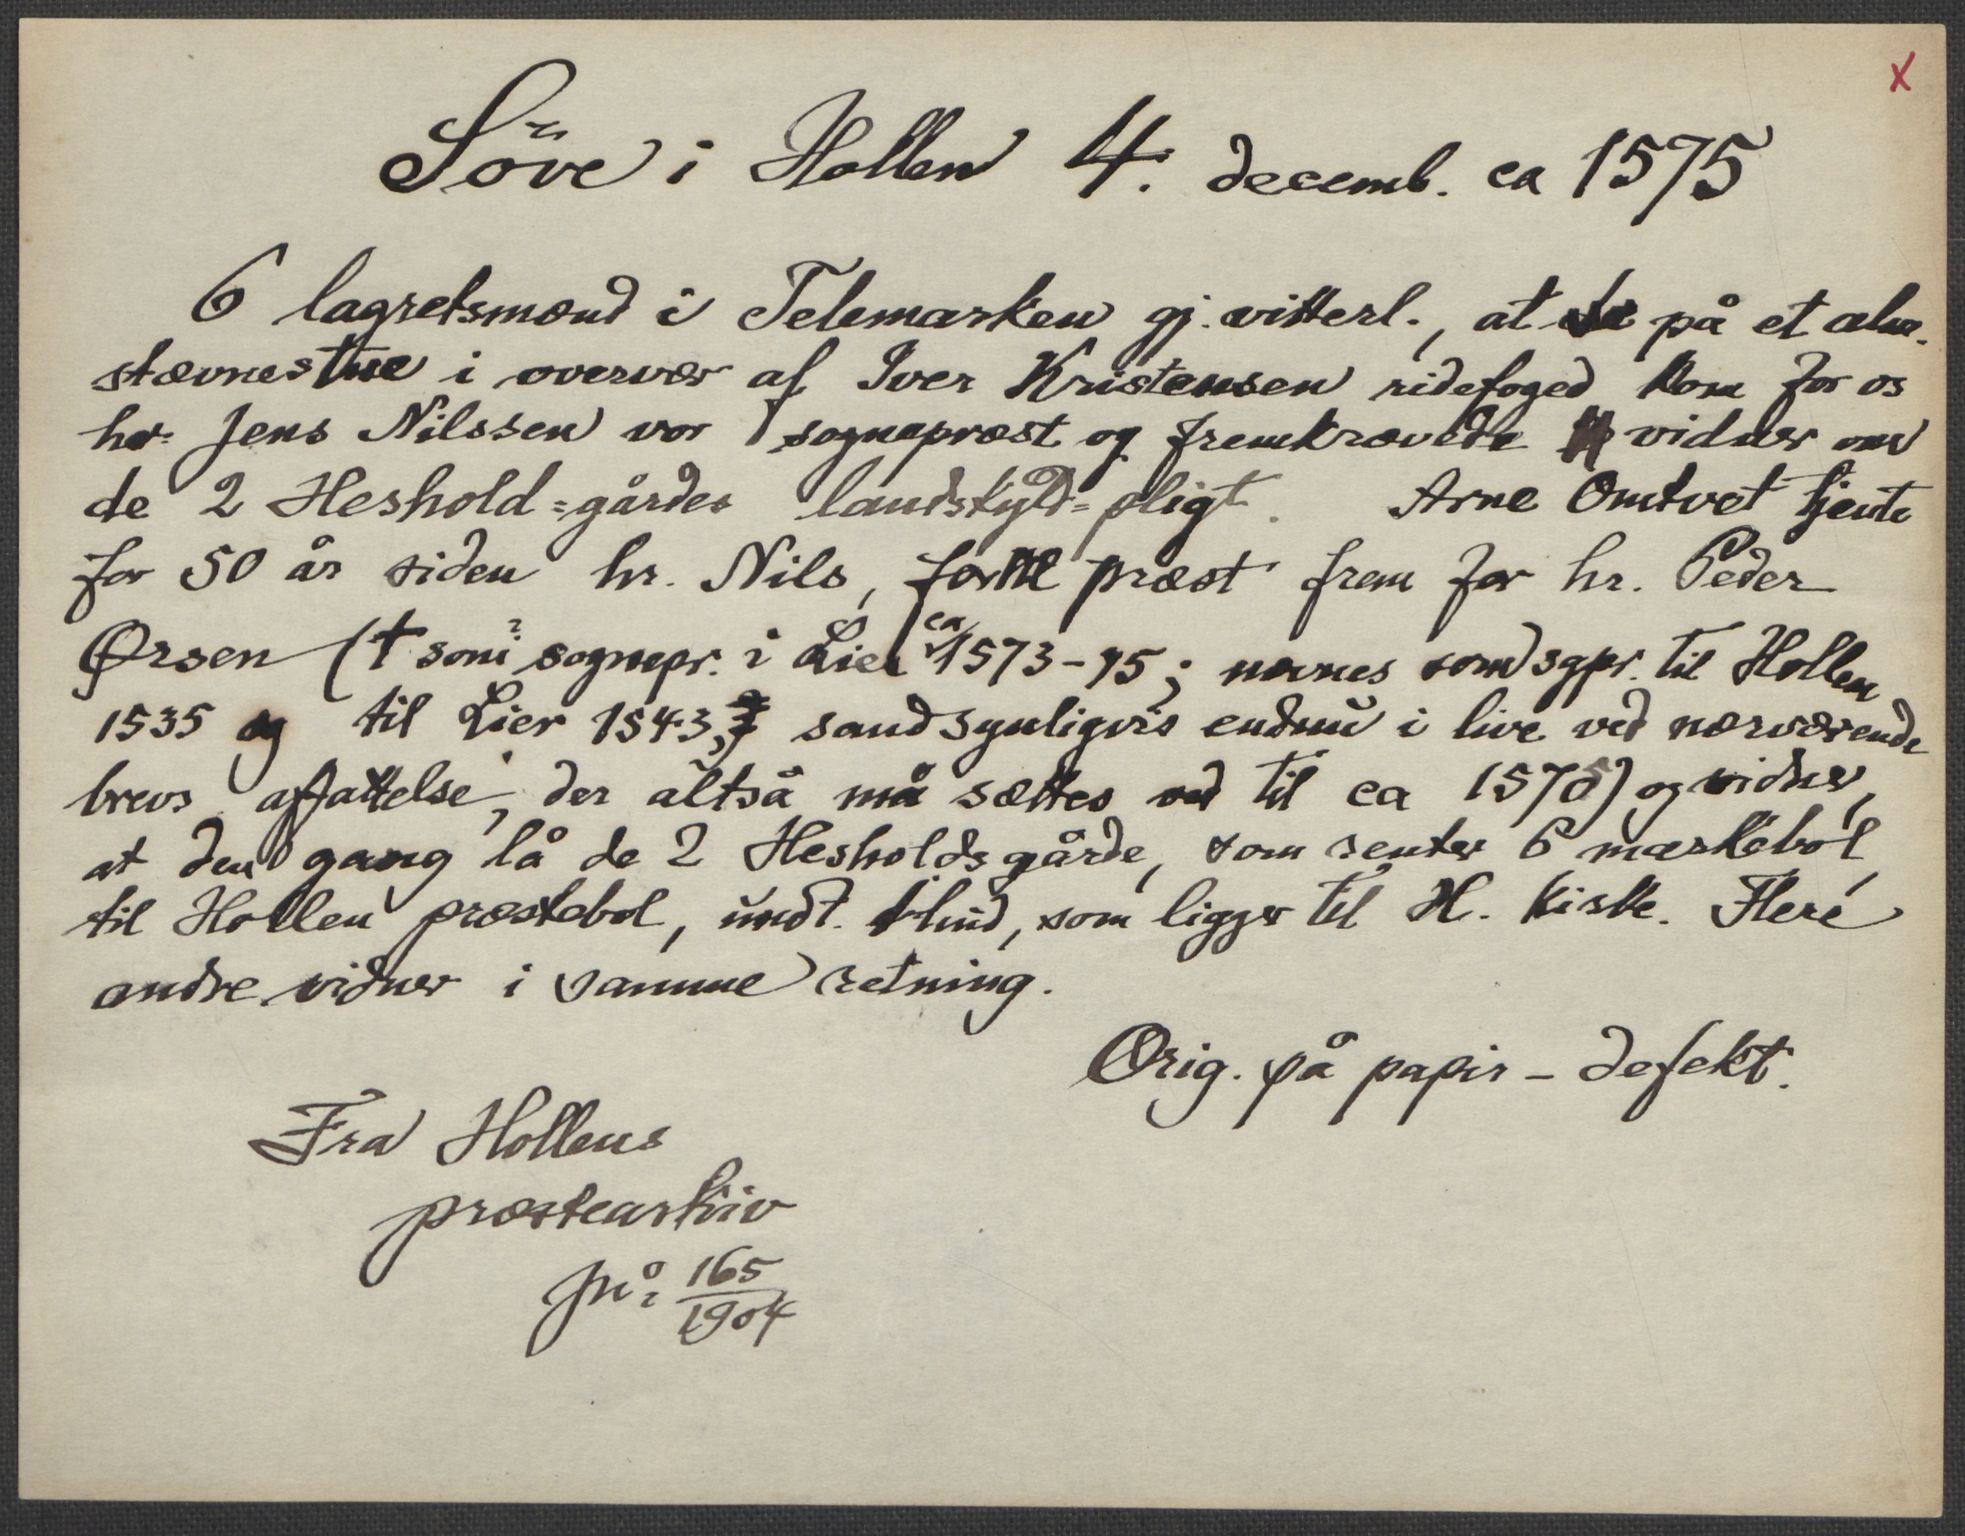 x
Söve i Hollen 4. decemb. ca 1575
6 lagretsmænd i Telemarken gj. vitterl., at på et alm.
stævnestue i overvær af Iver Kristensen ridefoged kom for os
her Jens Nilssen vor sognepræst og fremkrævede vidner om
de 2 Heshold=gårdes landskyld=pligt. Arne Omtvet tjente
for 50 år siden hr. Nils, præst frem for hr. Peder
Ørsen († som sognepr. i Lier ca 1573-75; nævnes som sgpr. til Hollen
1535 og til Lier 1543, sandsynligvis endnu i live ved nærværende
brevs affattelse, der altså må sættes ved til ca 1570) og vidner,
at den gang lå de 2 Hesholdsgårde, som renter 6 markebol
til Hollen præstebol, undt. 1 hud, som ligger til H. kirke. Flere
andre vidner i samme retning.
Orig. på papir – defekt.
Fra Hollens
præstearkiv
jnº: 165/1904